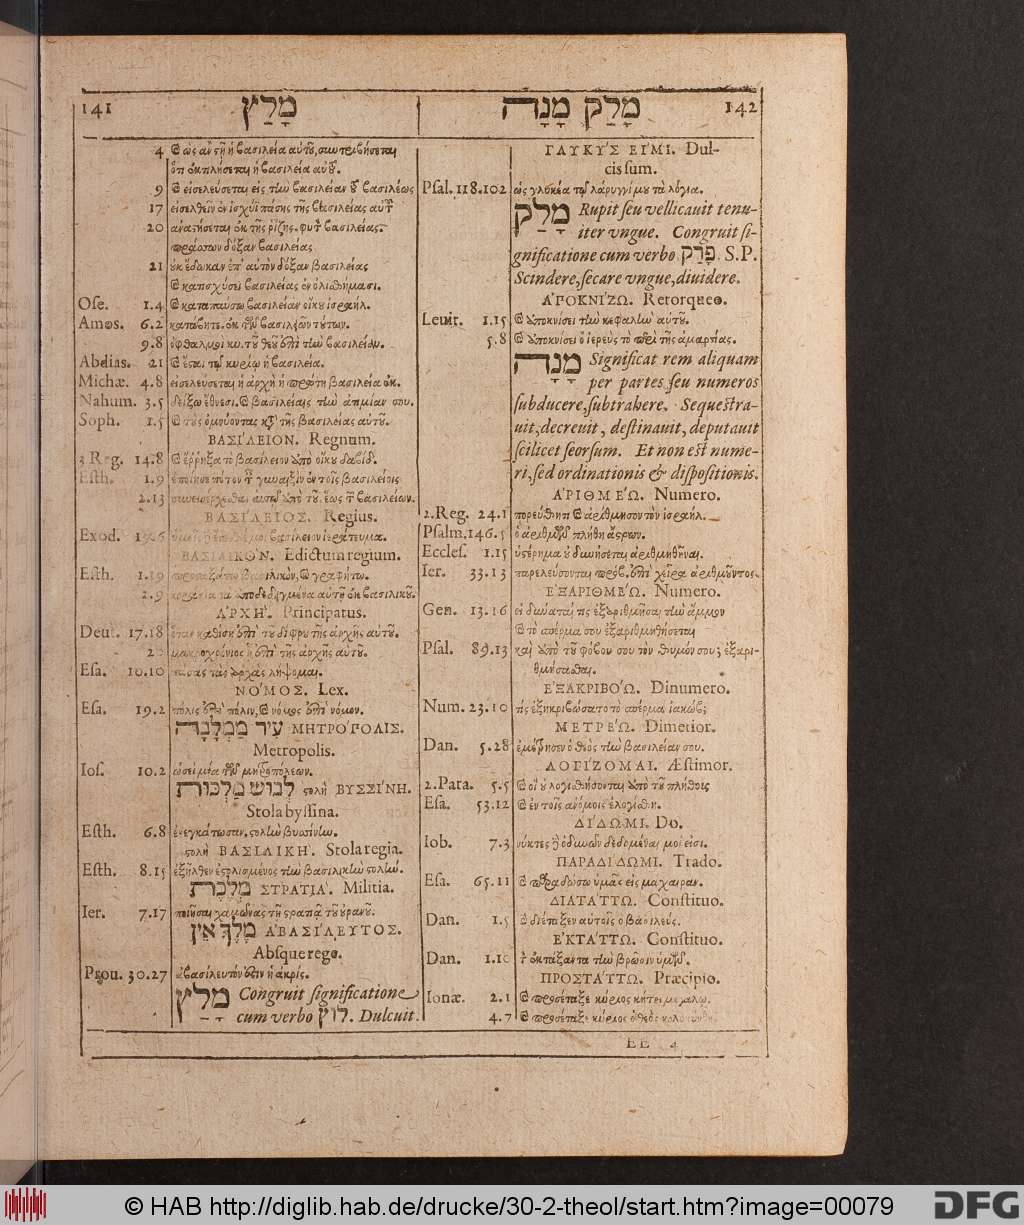 141 מָלַץ
4 καὶ ὡς ἂν στῇ ἡ βασιλεία αὐτοῦ, συντριβήσεται
ὅτι ἐκπλήσεται ἡ βασιλεία αὐτοῦ.
9 καὶ εἰσελεύσεται εἰς τὴν βασιλείαν τοῦ βασιλέως
17 εἰσελθεῖν ἐν ἰσχύϊ πάσης τῆς βασιλείας αὐτοῦ
20 ἀναστήσεται ἐκ τῆς ῥίζης. φυτὸν βασιλείας.
πράσσων δόξαν βασιλείας
21 οὐκ ἔδωκαν ἐπ' αὐτὸν δόξαν βασιλείας
καὶ κατισχύσει βασιλείας ἐν ὀλισθήμασι.
Ose. 1.4 καὶ καταπαύσω βασιλείαν οἴκου ἰσραήλ.
Amos. 6.2 κατάβητε. ἐκ πασῶν βασιλειῶν τούτων.
9.8 ὀφθαλμοὶ κυ. τοῦ θεοῦ ἐπὶ τὴν βασιλείαν.
Abdias. 21 καὶ ἔσται τῷ κυρίῳ ἡ βασιλεία.
Michæ. 4.8 εἰσελεύσεται ἡ ἀρχὴ ἡ πρώτη βασιλεία ἐκ.
Nahum. 3.5 δείξω ἔθνεσι. καὶ βασιλείαις τὴν ἀτιμίαν σου.
Soph. 1.5 καὶ τοὺς ὀμνύοντας κατὰ τῆς βασιλείας αὐτοῦ.
ΒΑΣΙΛΕΙΟΝ. Regnum.
3 Reg. 14.8 καὶ ἔῤῥηξα τὸ βασίλειον ἀπὸ οἴκου δαβίδ.
Esth. 1.9 ἐποίησε πότον ταῖς γυναιξὶν ἐν τοῖς βασιλείοις
2.13 συνεισέρχεται αὐτῷ ἀπὸ τοῦ. ἕως τῶν βασιλείων.
ΒΑΣΙΛΕΙΟΣ. Regius.
Exod. 19.6 βασίλειον ἱεράτευμα.
ΒΑΣΙΛΙΚΟΝ. Edictum regium.
Esth. 1.19 προσταξάτω βασιλικὸν, καὶ γραφήτω.
2.9
ΑΡΧΗ. Principatus.
Deut. 17.18 ὅταν καθίσῃ ἐπὶ τοῦ δίφρου τῆς ἀρχῆς αὐτοῦ.
μακροχρόνιος ᾖ ἐπὶ τῆς ἀρχῆς αὐτοῦ.
Esa. 10.10 πάσας τὰς ἀρχὰς λήψομαι.
ΝΟΜΟΣ. Lex.
Esa. 19.2 πόλις ἐπὶ πόλιν, καὶ νόμος ἐπὶ νόμον.
עִיר מַמְלָכָה ΜΗΤΡΟΠΟΛΙΣ.
Metropolis.
Ios. 10.2 ὡσεὶ μία τῶν μητροπόλεων.
לְבוּשׁ מַלְכוּת στολὴ ΒΥΣΣΙΝΗ.
Stola byssina.
Esth. 6.8 ἐνεγκάτωσαν, στολὴν βυσσίνην.
στολὴ ΒΑΣΙΛΙΚΗ. Stola regia.
Esth. 8.15 ἐξῆλθεν ἐστολισμένος τὴν βασιλικὴν στολήν.
מְלֶכֶת ΣΤΡΑΤΙΑ. Militia.
Ier. 7.17 ποιῆσαι χαμῶνας τῇ στρατιᾷ τοῦ οὐρανοῦ.
מֶלֶךְ אֵין ΑΒΑΣΙΛΕΥΤΟΣ.
Absque rege.
Prou. 30.27 ἀβασίλευτόν ἐστιν ἡ ἀκρίς.
מָלַץ Congruit significatione
cum verbo לוץ. Dulcuit.
מָלַק מָנָה 142
ΓΛΥΚΥΣ ΕΙΜΙ. Dul-
cis sum.
Psal. 118.102 ὡς γλυκέα τῷ λάρυγγί μου τὰ λόγια.
מָלַק Rupit seu vellicauit tenu-
iter vngue. Congruit si-
gnificatione cum verbo פָּרַק S.P.
Scindere, secare vngue, diuidere.
ΑΠΟΚΝΙΖΩ. Retorqueo.
Leuit. 1.15 καὶ ἀποκνίσει τὴν κεφαλὴν αὐτοῦ.
5.8 καὶ ἀποκνίσει ὁ ἱερεὺς τὸ περὶ τῆς ἁμαρτίας.
מָנָה Significat rem aliquam
per partes, seu numeros
subducere, subtrahere. Sequestra-
uit, decreuit, destinauit, deputauit
scilicet seorsum. Et non est nume-
ri, sed ordinationis & dispositionis.
ΑΡΙΘΜΕΩ. Numero.
2.Reg. 24.1 πορεύθητι καὶ ἀρίθμησον τὸν ἰσραήλ.
Psalm. 146.5 ὁ ἀριθμῶν πλήθη ἄστρων.
Eccles. 1.15 ὑστέρημα οὐ δυνήσεται ἀριθμηθῆναι.
Ier. 33.13 παρελεύσονται πρόβ. ἐπὶ χεῖρα ἀριθμοῦντος.
ΕΞΑΡΙΘΜΕΩ. Numero.
Gen. 13.16 εἰ δύναταί τις ἐξαριθμῆσαι τὴν ἄμμον
καὶ τὸ σπέρμα σου ἐξαριθμηθήσεται
Psal. 89.13 καὶ ἀπὸ τοῦ φόβου σου τὸν θυμόν σου; ἐξαρι-
θμήσασθαι.
ΕΞΑΚΡΙΒΟΩ. Dinumero.
Num. 23.10 τίς ἐξηκριβώσατο τὸ σπέρμα ἰακώβ;
ΜΕΤΡΕΩ. Dimetior.
Dan. 5.28 ἐμέτρησεν ὁ θεὸς τὴν βασιλείαν σου.
ΛΟΓΙΖΟΜΑΙ. Æstimor.
2.Para. 5.5 καὶ οἳ οὐ λογισθήσονται ἀπὸ τοῦ πλήθους
Esa. 53.12 καὶ ἐν τοῖς ἀνόμοις ἐλογίσθη.
ΔΙΔΩΜΙ. Do.
Iob. 7.3 νύκτες δὲ ὀδυνῶν δεδομέναι μοί εἰσι.
ΠΑΡΑΔΙΔΩΜΙ. Trado.
Esa. 65.11 καὶ παραδώσω ὑμᾶς εἰς μάχαιραν.
ΔΙΑΤΑΤΤΩ. Constituo.
Dan. 1.5 καὶ διέταξεν αὐτοῖς ὁ βασιλεύς.
ΕΚΤΑΤΤΩ. Constituo.
Dan. 1.10 τὸν ἐκτάξαντα τὴν βρῶσιν ὑμῶν.
ΠΡΟΣΤΑΤΤΩ. Præcipio.
Ionæ. 2.1 καὶ προσέταξε κύριος κήτει μεγάλῳ.
4.7 καὶ προσέταξε κύριος ὁ θεὸς κολοκύνθῃ
EE 4
© HAB http://diglib.hab.de/drucke/30-2-theol/start.htm?image=00079
DFG